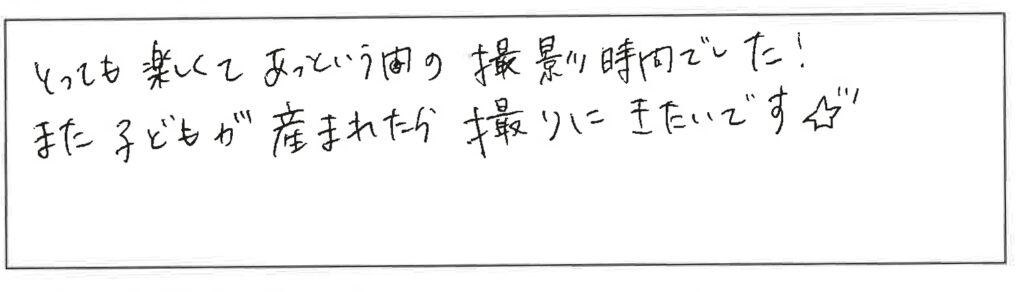 とっても楽しくてあっという間の撮影時間でした!
また子どもが産まれたら撮りにきたいです☆